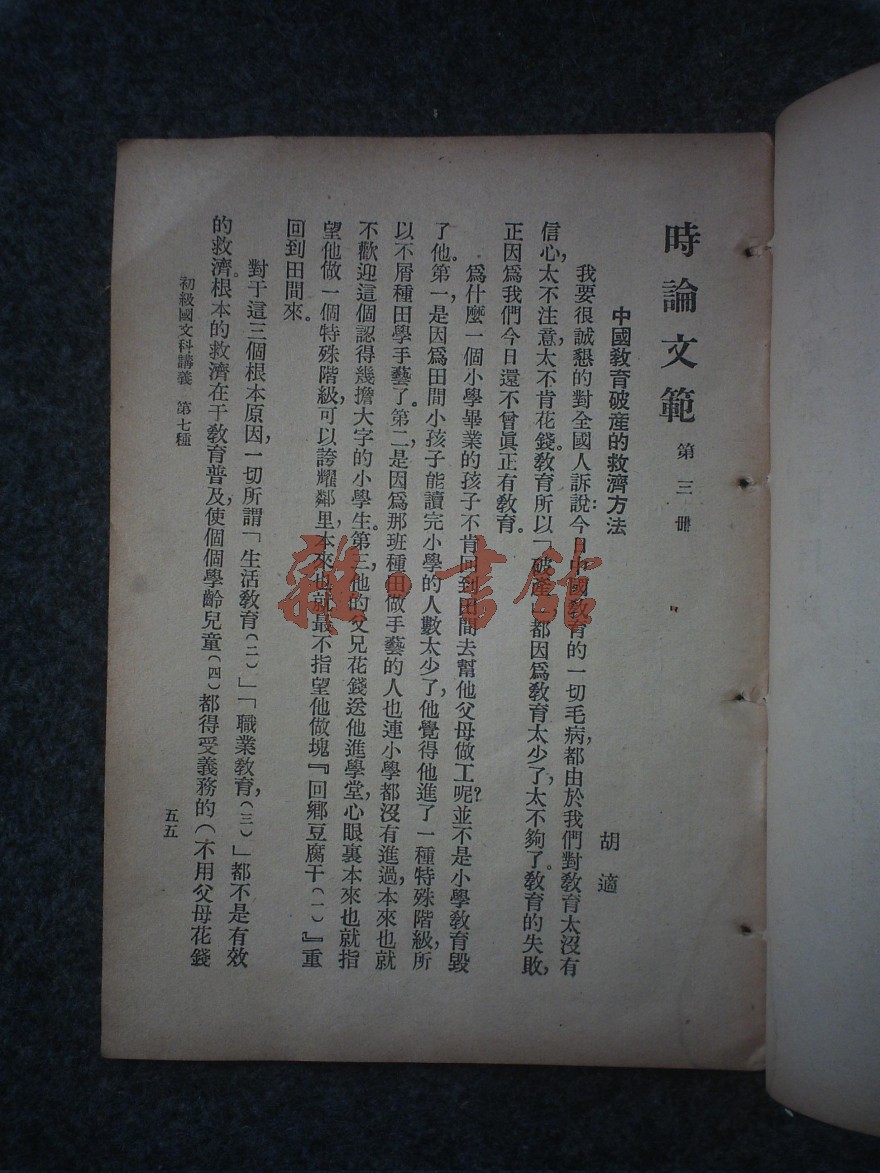 時論文範 第三册
中國教育破產的救濟方法
胡適
我要很誠懇的對全國人訴說:今日中國教育的一切毛病,都由於我們對教育太沒有
信心,太不注意,太不肯花錢。教育所以「破產」,都因爲教育太少了,太不夠了。教育的失敗,
正因爲我們今日還不曾眞正有教育。
爲什麼一個小學畢業的孩子不肯回到田間去幫他父母做工呢?並不是小學教育毀
了他。第一,是因爲田間小孩子能讀完小學的人數太少了,他覺得他進了一種特殊階級,所
以不屑種田學手藝了。第二,是因爲那班種田做手藝的人也連小學都沒有進過,本來也就
不歡迎這個認得幾擔大字的小學生。第三,他的父兄花錢送他進學堂,心眼裏本來也就指
望他做一個特殊階級,可以誇耀鄰里,本來也就最不指望他做塊『回鄉豆腐干(一)』重
回到田間來。
對于這三個根本原因,一切所謂「生活教育(二)」「職業教育,(三)」都不是有效
的救濟。根本的救濟在于教育普及,使個個學齡兒童(四)都得受義務的(不用父母花錢
初級國文科講義 第七種
五五
雜·書館